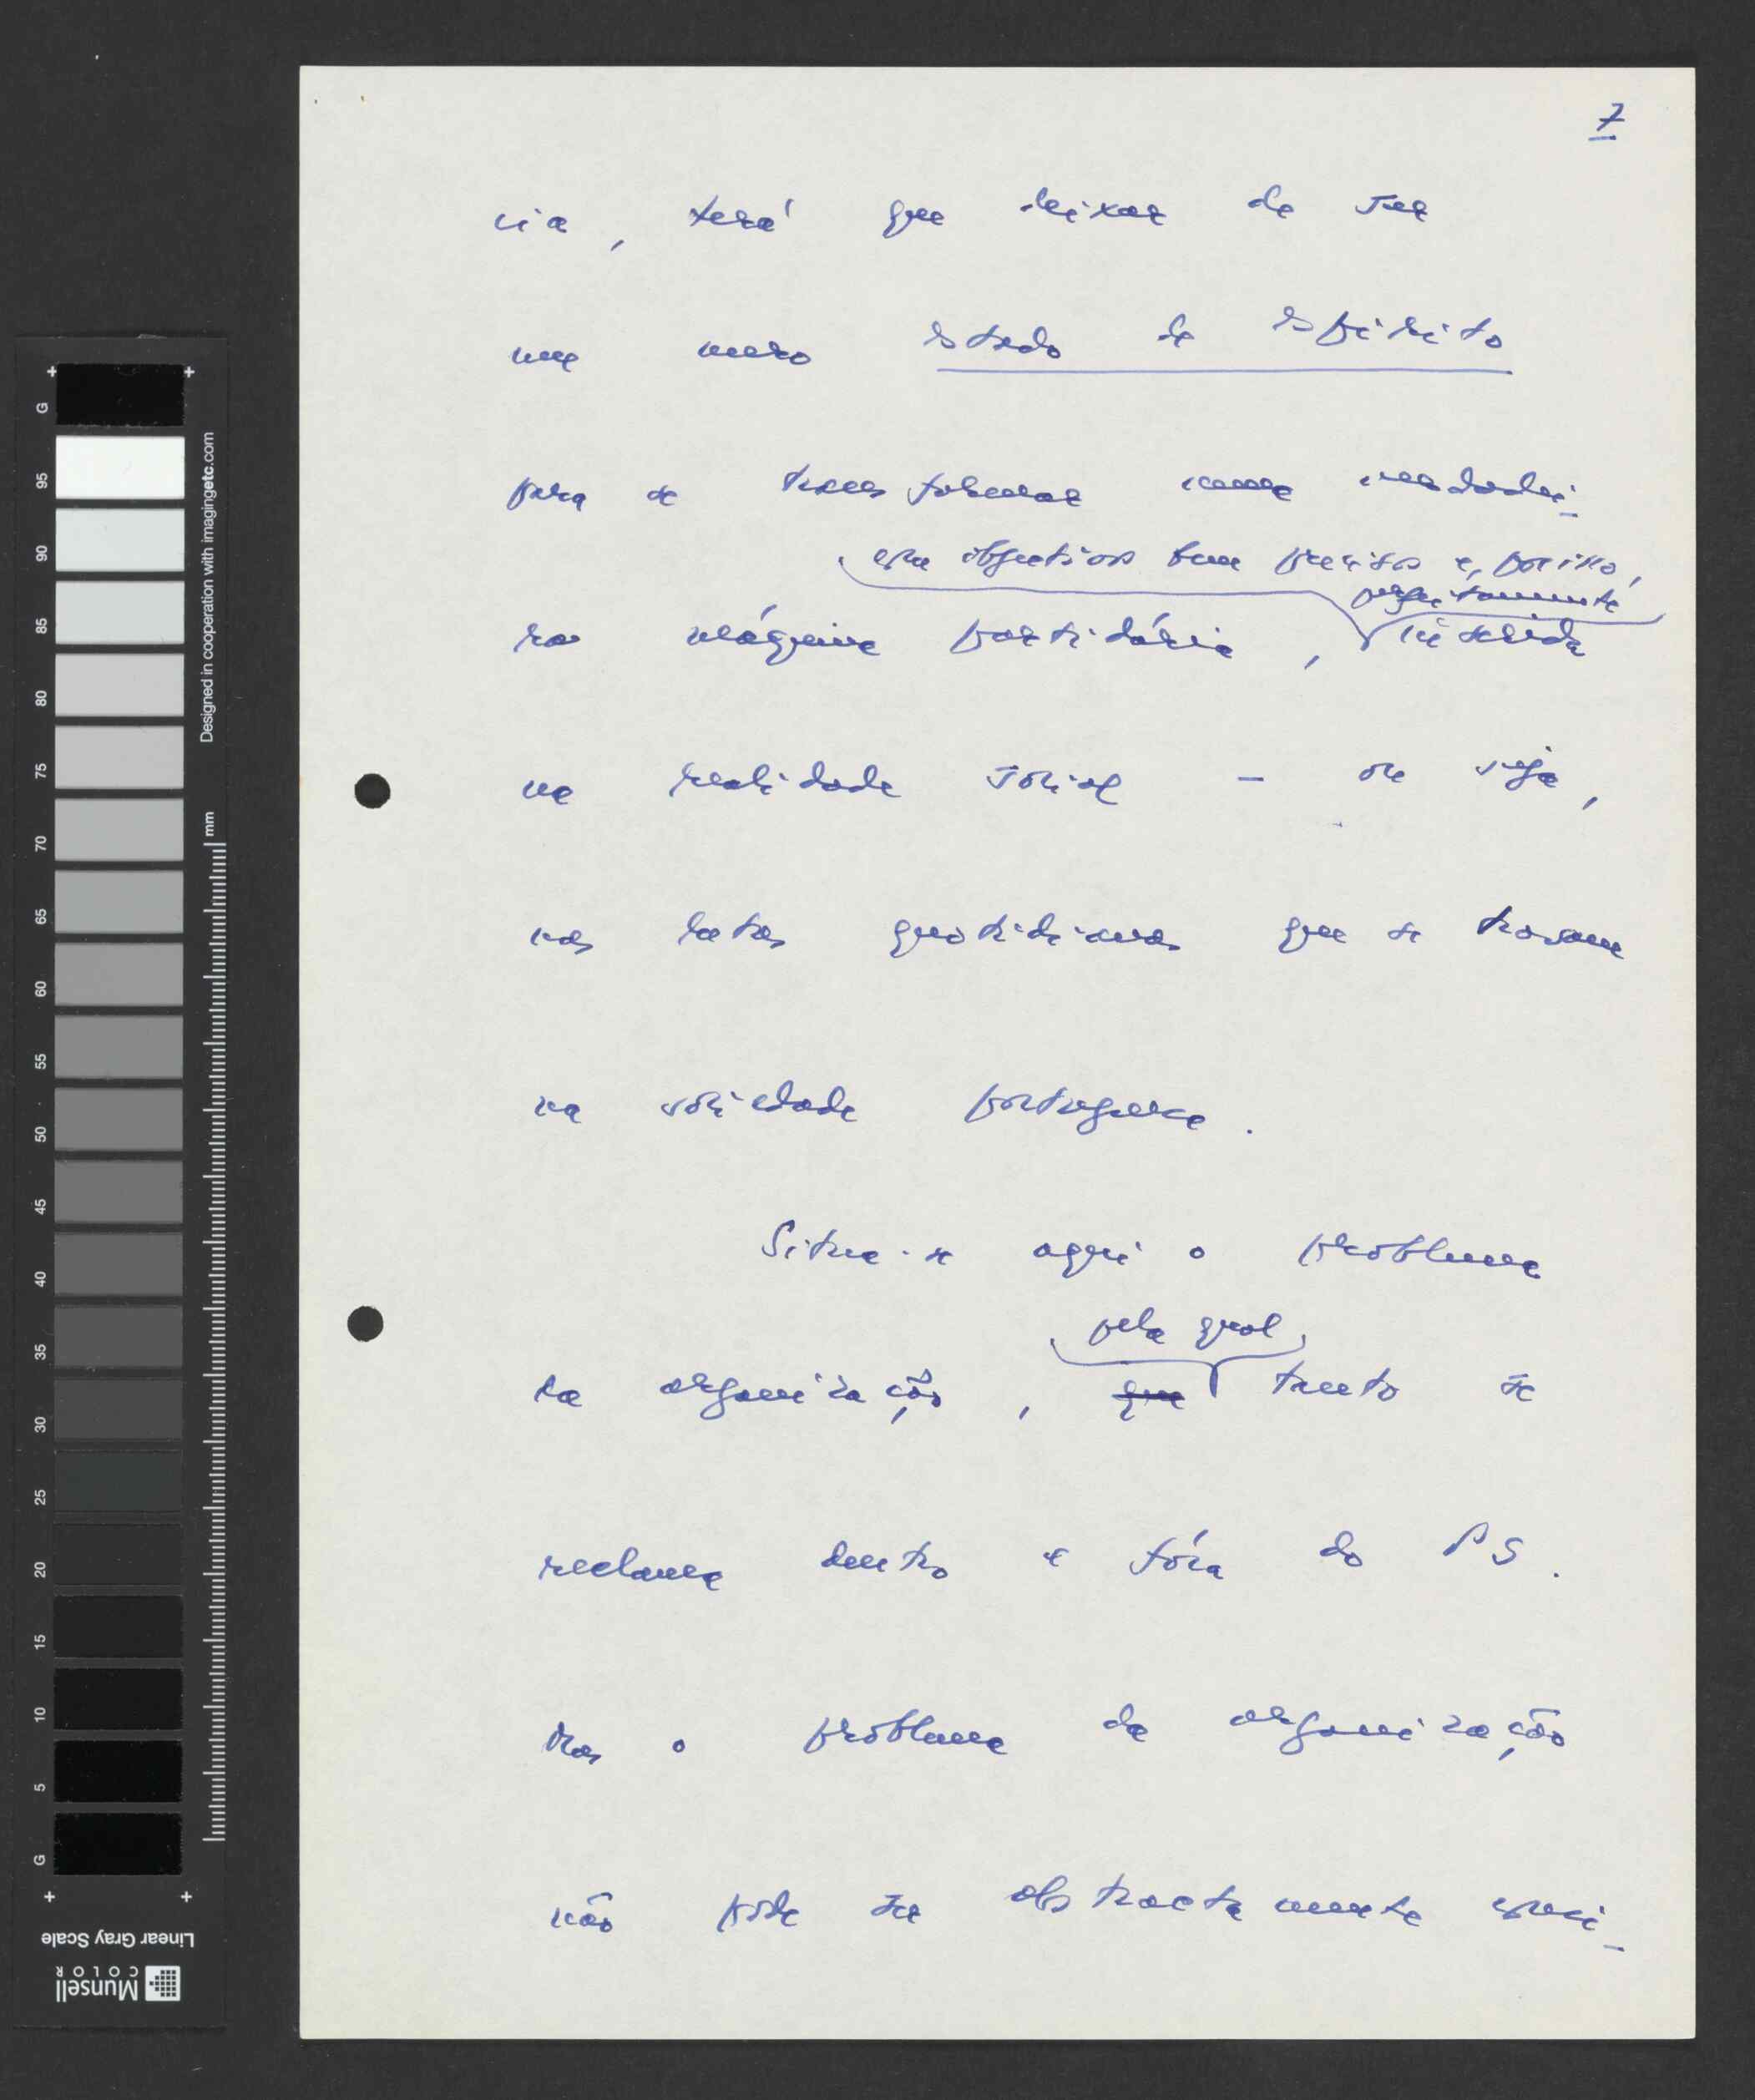 7
cia, terá que deixar de ser
um mero estado de espírito
para se transformar numa verdadei-
com objectivos bem precisos e, por isso,
perfeitamente
ra máquina partidária, inserida
na realidade social - ou seja,
nas lutas quotidianas que se travam
na sociedade portuguesa.
Situa-se aqui o problema
pela qual
da organização, que tanto se
reclama dentro e fóra do PS.
Mas o problema da organização
não pode ser abstractamente equaci-
G 95 90 85 80 75 70 65 60 55 50 45 40 35 30 25 20 15 10 5 G
Designed in cooperation with imagingetc.com
mm
Linear Gray Scale
Munsell
COLOR